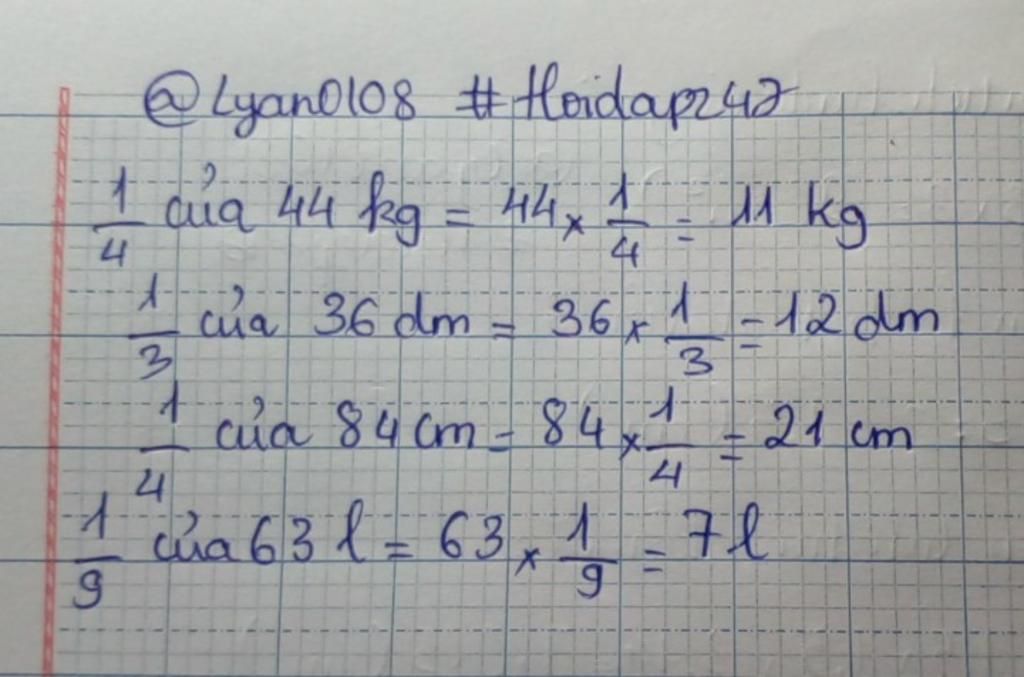 @Lyan0108 #Hoidap247
1/4 của 44 kg = 44 × 1/4 = 11 kg
1/3 của 36 dm = 36 × 1/3 = 12 dm
1/4 của 84 cm = 84 × 1/4 = 21 cm
1/9 của 63 l = 63 × 1/9 = 7 l